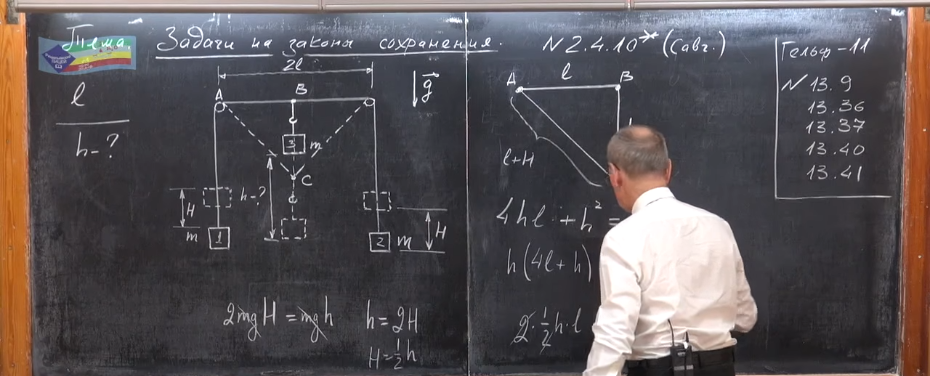 Тема. Задачи на законы сохранения. N 2.4.10* (Савч.)
l
h-?
2l
A B
g
3 m
C
h-?
H
m 1
2 m
H
2mgH = mgh
h = 2H
H = ½h
A l B
l+H
4hl + h² =
h(4l + h)
2·½h·l
Гельф-11
N 13.9
13.36
13.37
13.40
13.41